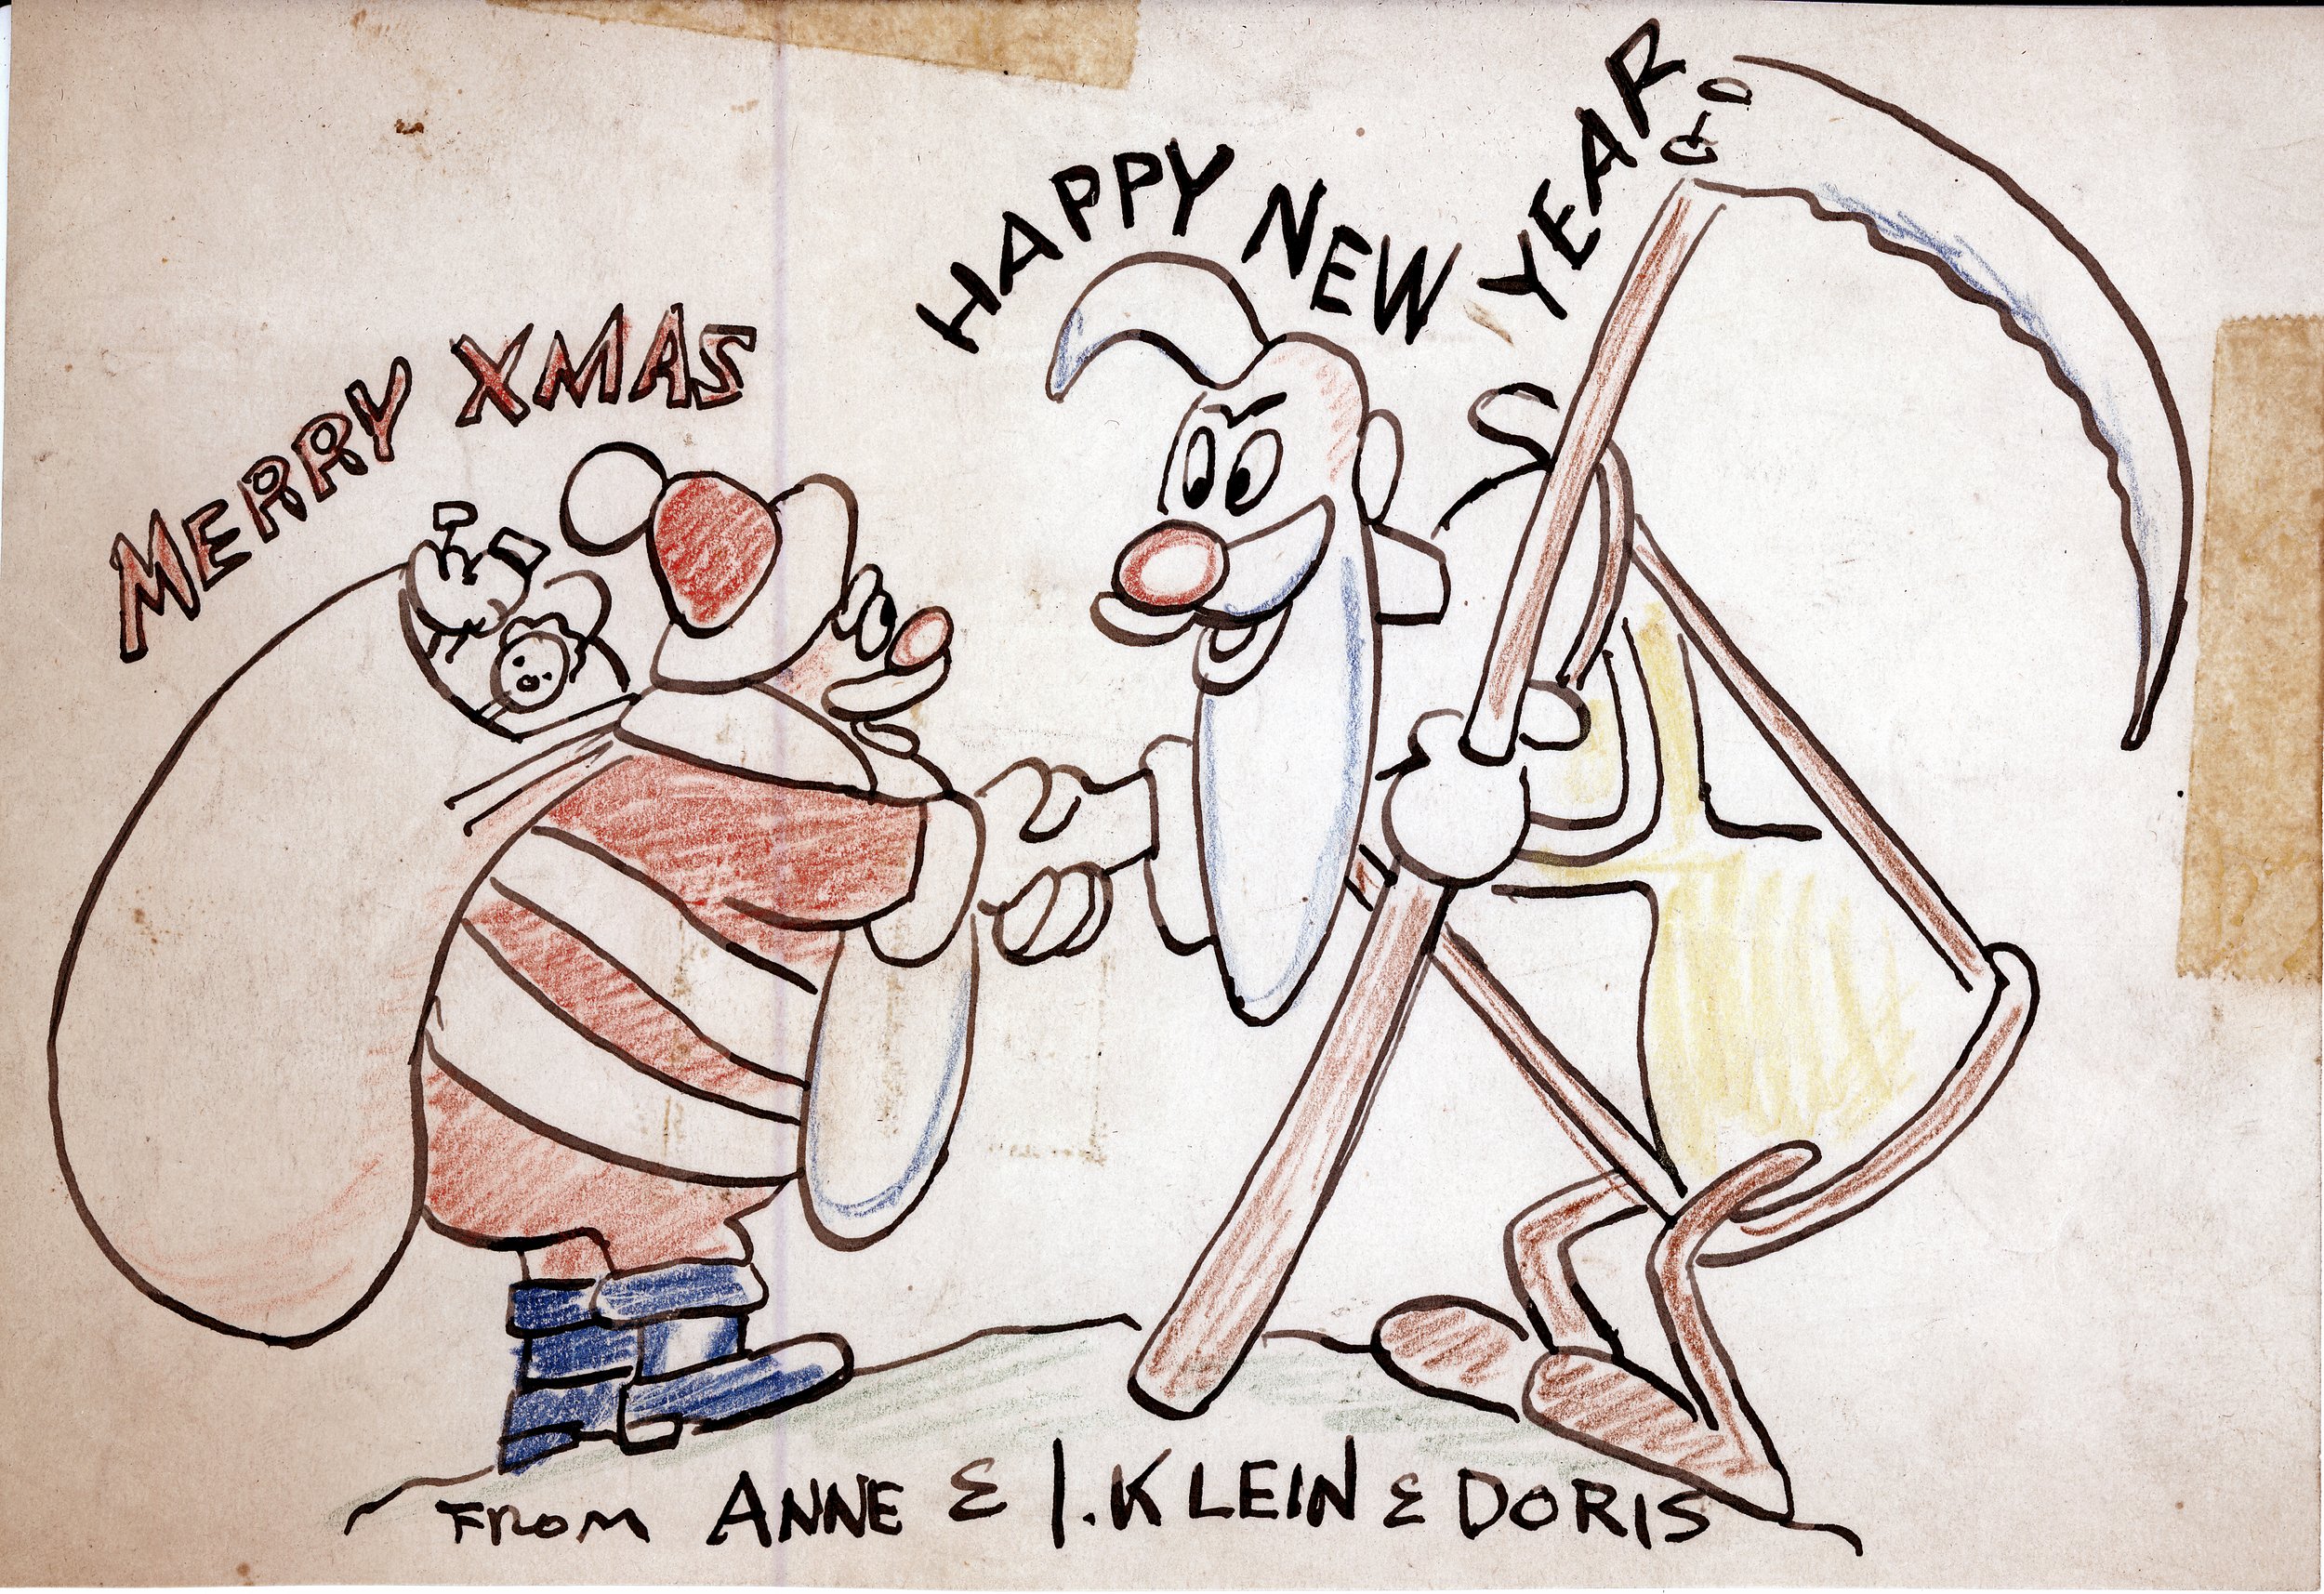 MERRY XMAS
HAPPY NEW YEAR
FROM ANNE & I. KLEIN & DORIS